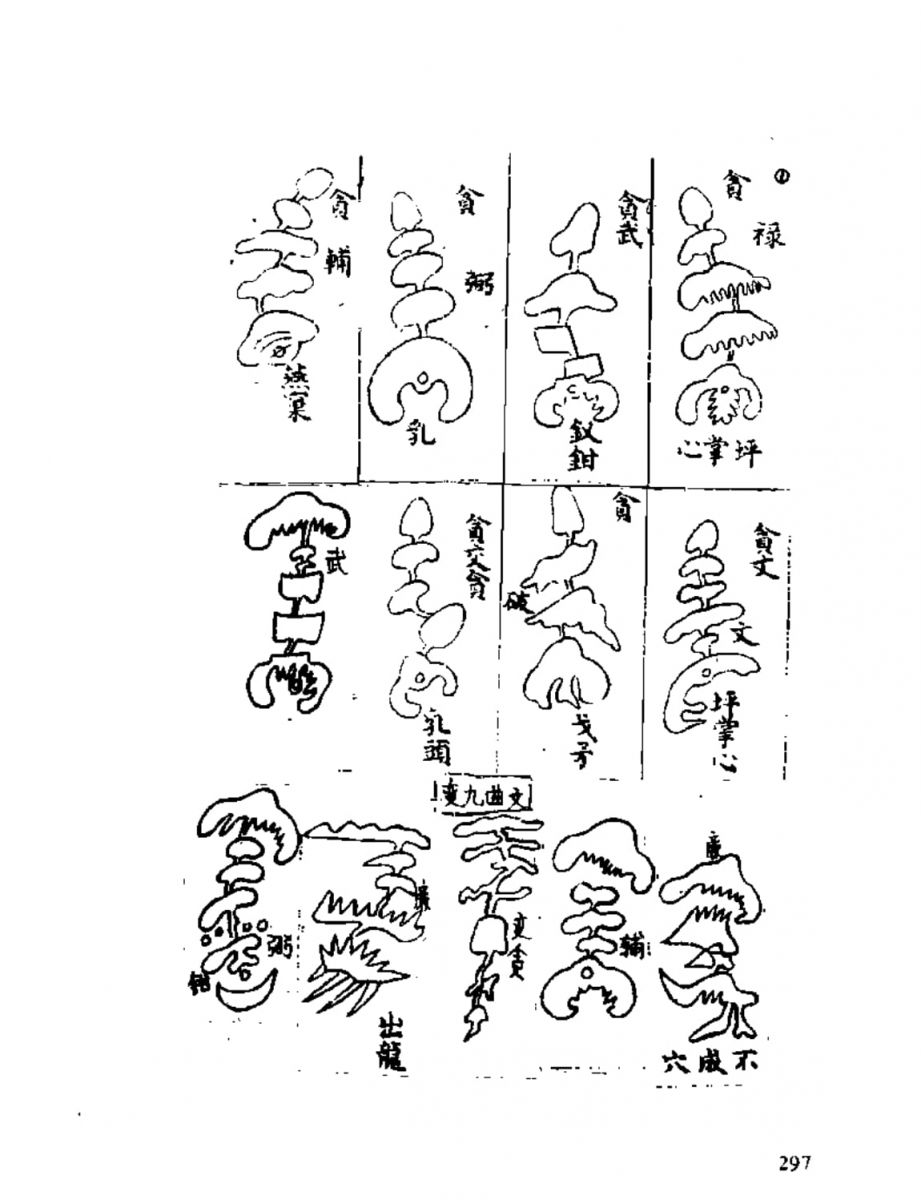 ①
貪
禄
坪掌心
貪武
釵鉗
貪
弼
乳
貪
輔
燕窠
貪文
文
坪掌心
貪
破
戈矛
貪交貪
乳頭
武
文曲九变
廉
不成穴
輔
变貪
出龍
弼
鉗
297